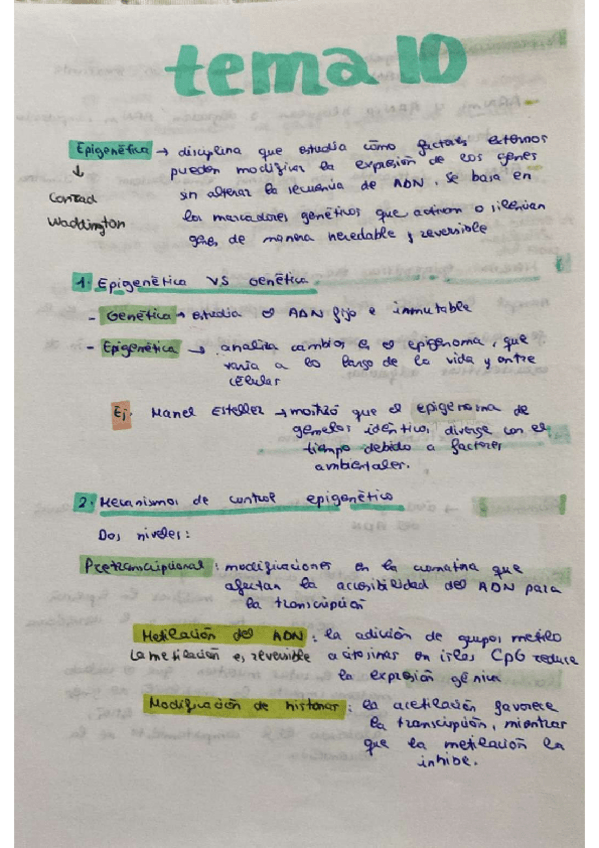 tema 10
Epigenética → disciplina que estudia cómo factores externos
↓ pueden modificar la expresión de los genes
Conrad sin alterar la secuencia de ADN. Se basa en
Waddington los marcadores genéticos que activan o silencian
genes de manera heredable y reversible
1. Epigenética VS Genética
- Genética → estudia el ADN fijo e inmutable
- Epigenética → analiza cambios en el epigenoma, que
varía a lo largo de la vida y entre
células
Ej. Manel Esteller → mostró que el epigenoma de
gemelos idénticos diverge con el
tiempo debido a factores
ambientales.
2. Mecanismos de control epigenético
Dos niveles:
Pretranscripcional: modificaciones en la cromatina que
afectan la accesibilidad del ADN para
la transcripción
Metilación del ADN: la adición de grupos metilo
La metilación es reversible a citosinas en islas CpG reduce
la expresión génica
Modificación de histonas: la acetilación favorece
la transcripción, mientras
que la metilación la
inhibe.